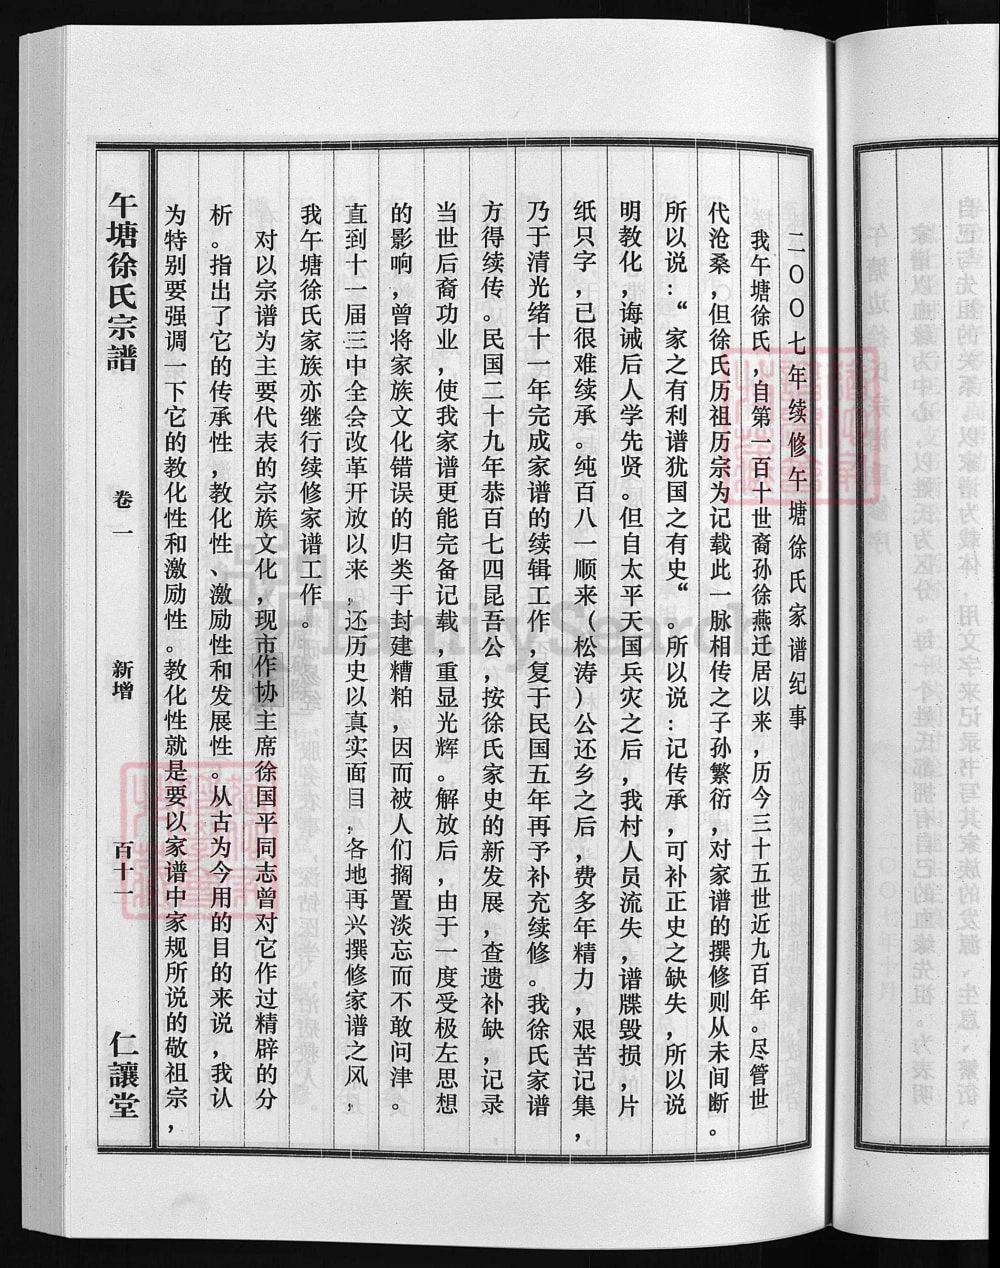 二〇〇七年续修午塘徐氏家谱纪事
我午塘徐氏,自第一百十世裔孙徐燕迁居以来,历今三十五世近九百年。尽管世
代沧桑,但徐氏历祖历宗为记载此一脉相传之子孙繁衍,对家谱的撰修则从未间断。
所以说:“家之有利谱犹国之有史“。所以说:记传承,可补正史之缺失,所以说
明教化,诲诫后人学先贤。但自太平天国兵灾之后,我村人员流失,谱牒毁损,片
纸只字,已很难续承。纯百八一顺来(松涛)公还乡之后,费多年精力,艰苦记集,
乃于清光绪十一年完成家谱的续辑工作,复于民国五年再予补充续修。我徐氏家谱
方得续传。民国二十九年恭百七四昆吾公,按徐氏家史的新发展,查遗补缺,记录
当世后裔功业,使我家谱更能完备记载,重显光辉。解放后,由于一度受极左思想
的影响,曾将家族文化错误的归类于封建糟粕,因而被人们搁置淡忘而不敢问津。
直到十一届三中全会改革开放以来,还历史以真实面目,各地再兴撰修家谱之风,
我午塘徐氏家族亦继行续修家谱工作。
对以宗谱为主要代表的宗族文化,现市作协主席徐国平同志曾对它作过精辟的分
析。指出了它的传承性,教化性、激励性和发展性。从古为今用的目的来说,我认
为特别要强调一下它的教化性和激励性。教化性就是要以家谱中家规所说的敬祖宗,
午塘徐氏宗譜
卷一
新增
百十一
仁讓堂
FamilySearch